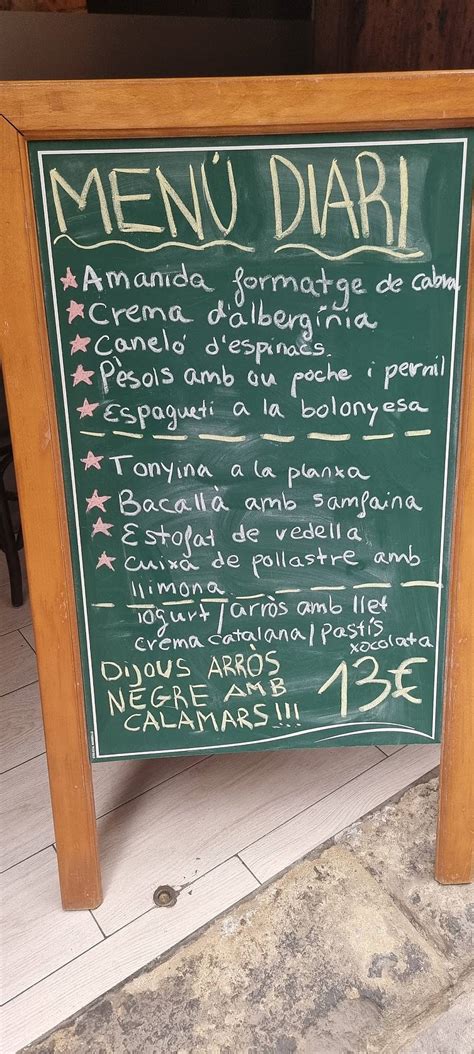 MENÚ DIARI
Amanida formatge de cabra
Crema d'albergínia
Caneló d'espinacs.
Pèsols amb ou poche i pernil
Espagueti a la bolonyesa
Tonyina a la planxa
Bacallà amb samfaina
Estofat de vedella
Cuixa de pollastre amb
llimona
iogurt / arròs amb llet
crema catalana / Pastís
xocolata
DIJOUS ARRÒS
NEGRE AMB
CALAMARS!!!
13€